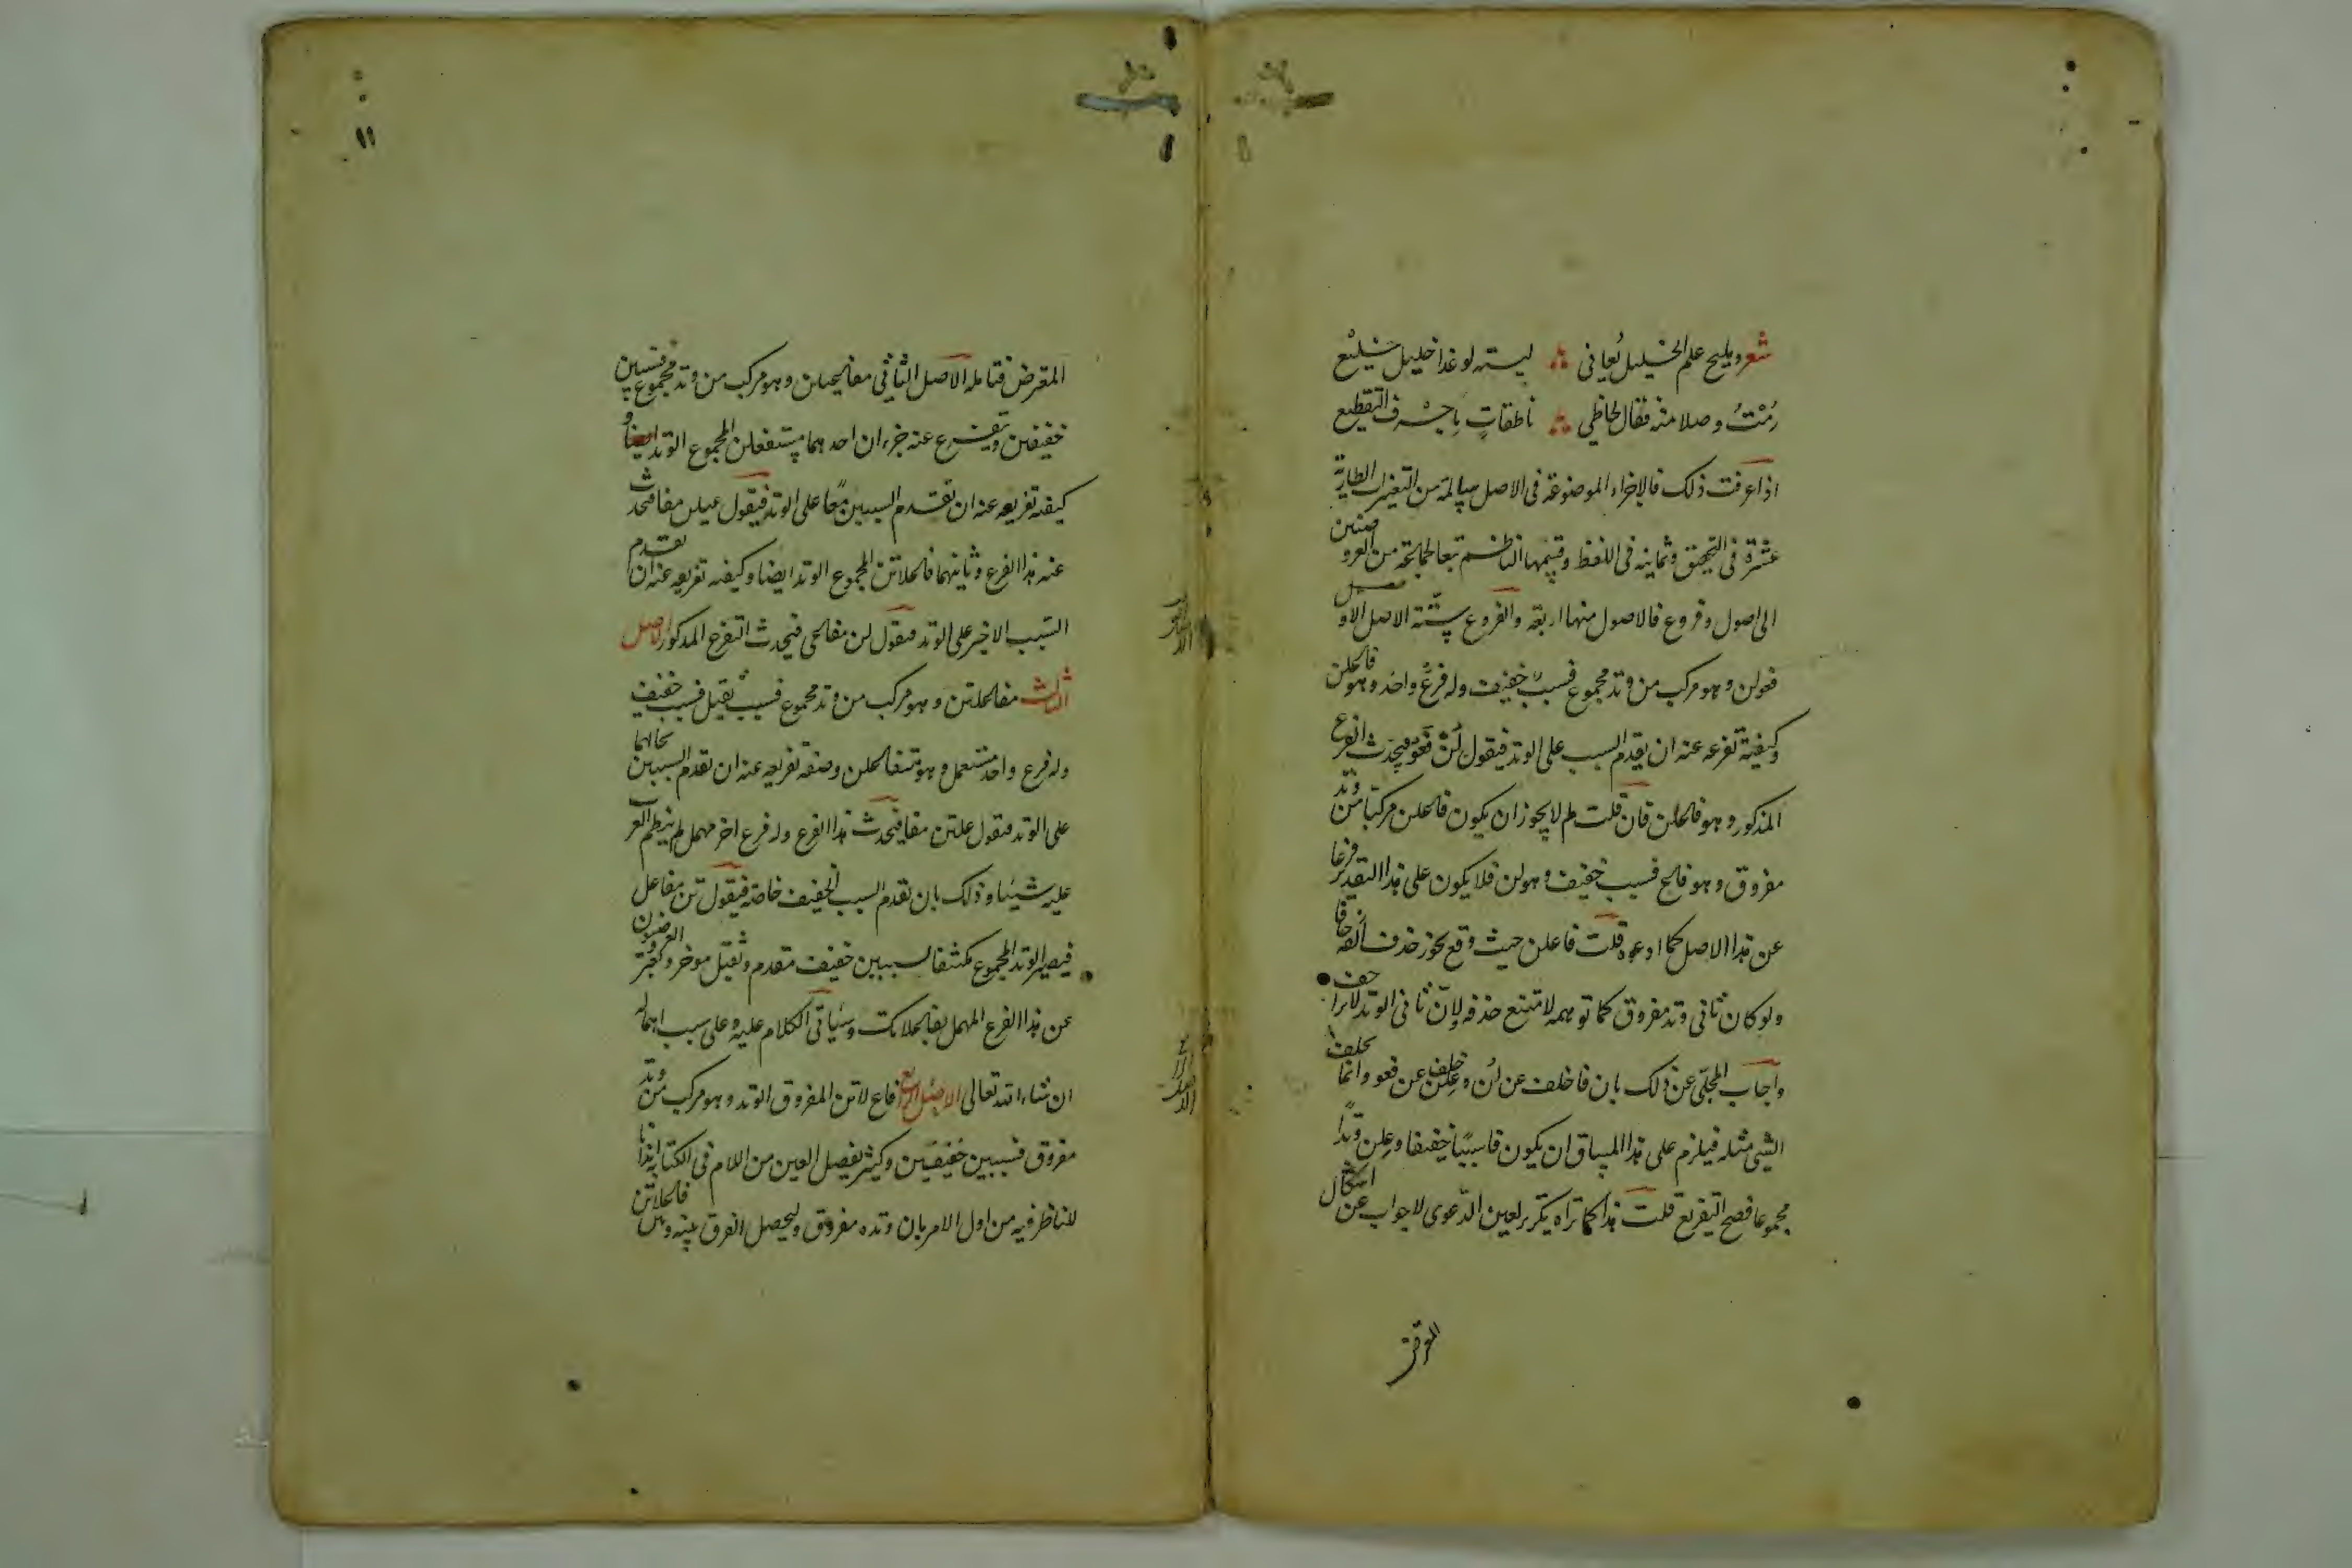 شعر ومليح علم الخليل يعاني ليته لو غدا خليلي خليع
رمت وصلا منه فقال لحاظي ناطقات باحرف التقطيع
اذا عرفت ذلك فالاجزاء الموضوعة في الاصل سالمة من التغيرات الطارية
عشرة في التحقيق وثمانية في اللفظ وقسمها الناظم تبعا لجماعة من العروضيين
الى اصول وفروع فالاصول منها اربعة والفروع ستة الاصل الاول
فعولن وهو مركب من وتد مجموع فسبب خفيف وله فرع واحد وهو فاعلن
وكيفية تفرعه عنه ان يقدم السبب على الوتد فيقول لن فعو فيحدث الفرع
المذكور وهو فاعلن فان قلت لم لا يجوز ان يكون فاعلن مركبا من وتد
مفروق وهو فاع فسبب خفيف وهو لن فلا يكون على هذا التقدير فرعا
عن هذا الاصل كما ادعوه قلت فاعلن حيث وقع يجوز حذف الفه زحافا
ولو كان ثاني وتد مفروق كما توهمه لامتنع حذفه لان ثاني الوتد لا يزاحف
واجاب المحلي عن ذلك بان فا خلف عن لن وعلن خلف عن فعو وانما يخلف
الشيء مثله فيلزم على هذا المساق ان يكون فا سببا خفيفا وعلن وتدا
مجموعا فصح التفريع قلت هذا كما تراه تكرير لعين الدعوى لا جواب عن اشكال
المعترض فتامله الاصل الثاني مفاعيلن وهو مركب من وتد مجموع فسببين
خفيفين ويتفرع عنه جزءان احدهما مستفعلن المجموع الوتد ايضا و
كيفية تفريعه عنه ان تقدم السببين معا على الوتد فيقول عيلن مفا فيحدث
عنه هذا الفرع وثانيهما فاعلاتن المجموع الوتد ايضا وكيفية تفريعه عنه ان تقدم
السبب الاخير على الوتد فتقول لن مفاعي فيحدث التفرع المذكور الاصل
الثالث مفاعلتن وهو مركب من وتد مجموع فسبب ثقيل فسبب خفيف
وله فرع واحد مستعمل وهو متفاعلن وصفة تفريعه عنه ان تقدم السببين بحالهما
على الوتد فتقول علتن مفا فيحدث هذا الفرع وله فرع اخر مهمل لم ينظم العرب
عليه شيئا وذلك بان تقدم السبب الخفيف خاصة فيقول تن مفاعل
فيصير الوتد المجموع مكتنفا لسببين خفيف متقدم وثقيل موخر ويعبر العروضيون
عن هذا الفرع المهمل بفاعلاتك وسياتي الكلام عليه وعلى سبب اهماله
ان شاء الله تعالى الاصل الرابع فاع لاتن المفروق الوتد وهو مركب من وتد
مفروق فسببين خفيفين وكيثر تفصل العين من اللام في الكتابة ايذانا
للناظر فيه من اول الامر بان وتده مفروق وليحصل الفرق بينه وبين فاعلاتن